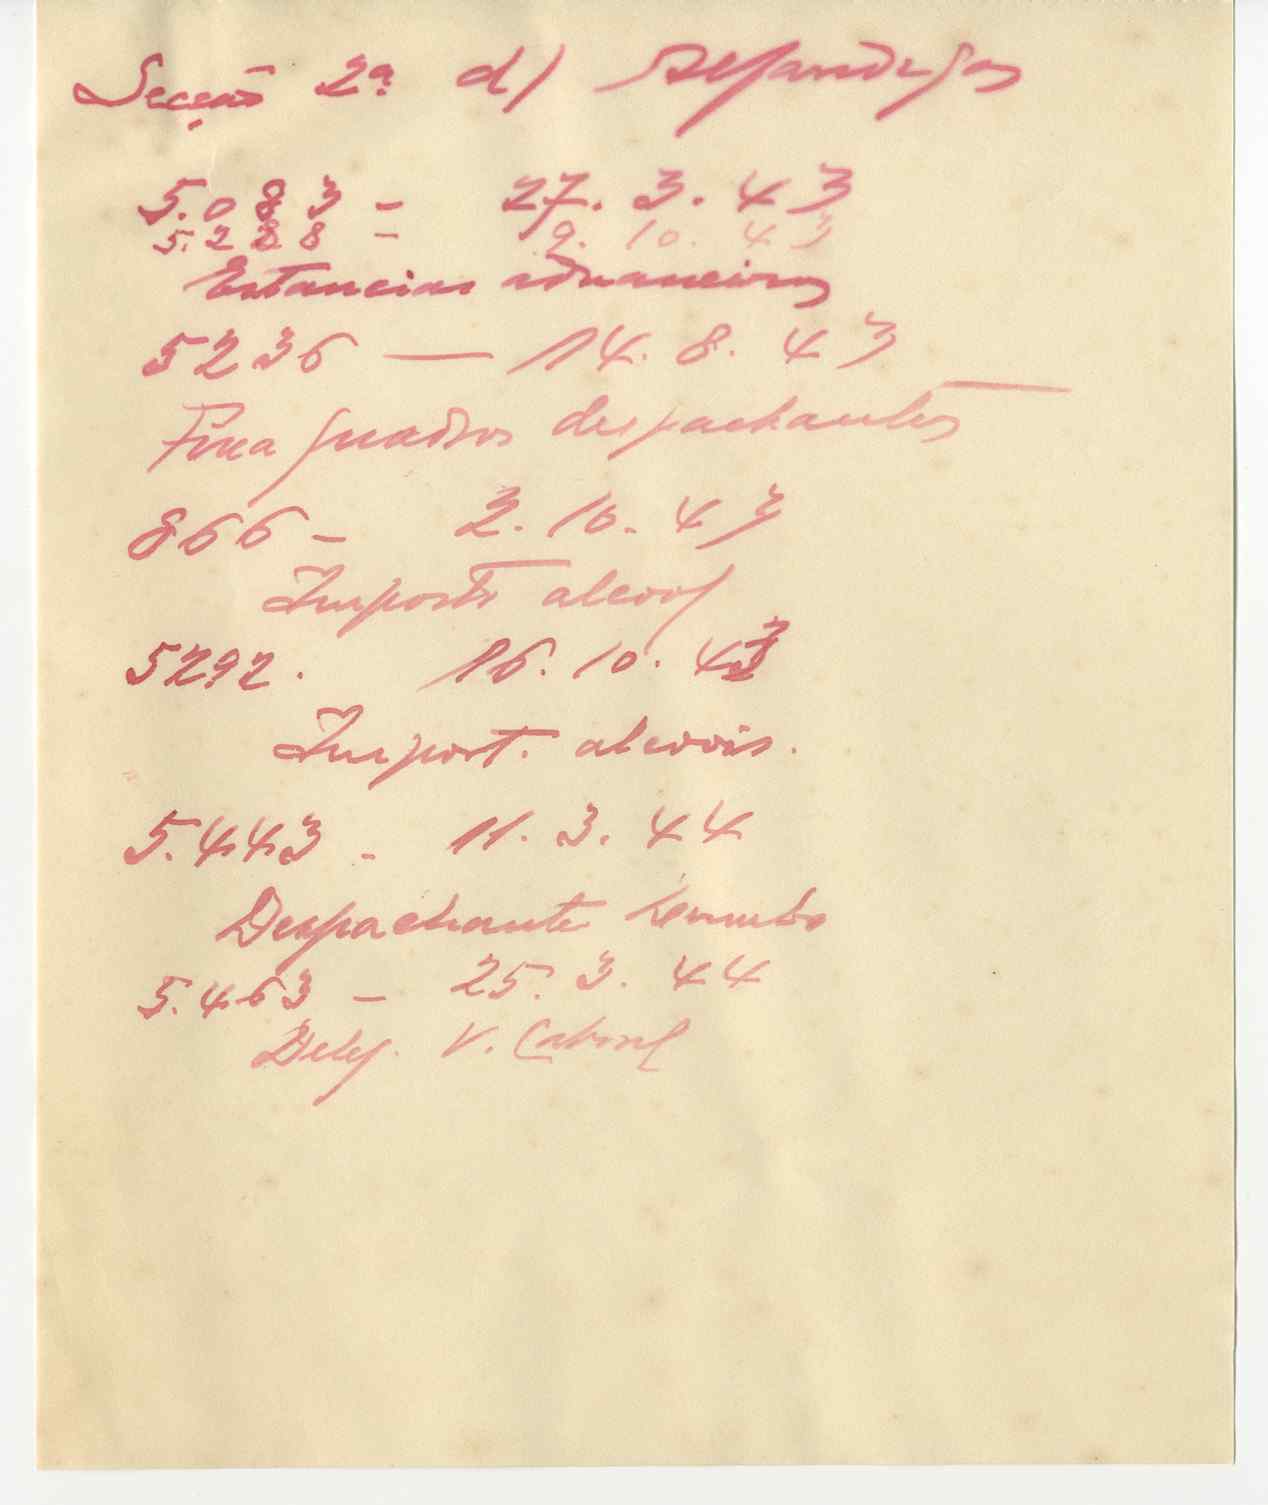 Secção 2ª d) Alfandegas
5.083 - 27.3.43
5.288 - 9.10.43
Estancias aduaneiras
5236 — 14.8.43
Fixa quadros despachantes
866 - 2.10.43
Imposto alcool
5292. 16.10.43
Import. alcoois.
5.443 - 11.3.44
Despachante
5.463 - 25.3.44
Deleg. V. Cabral